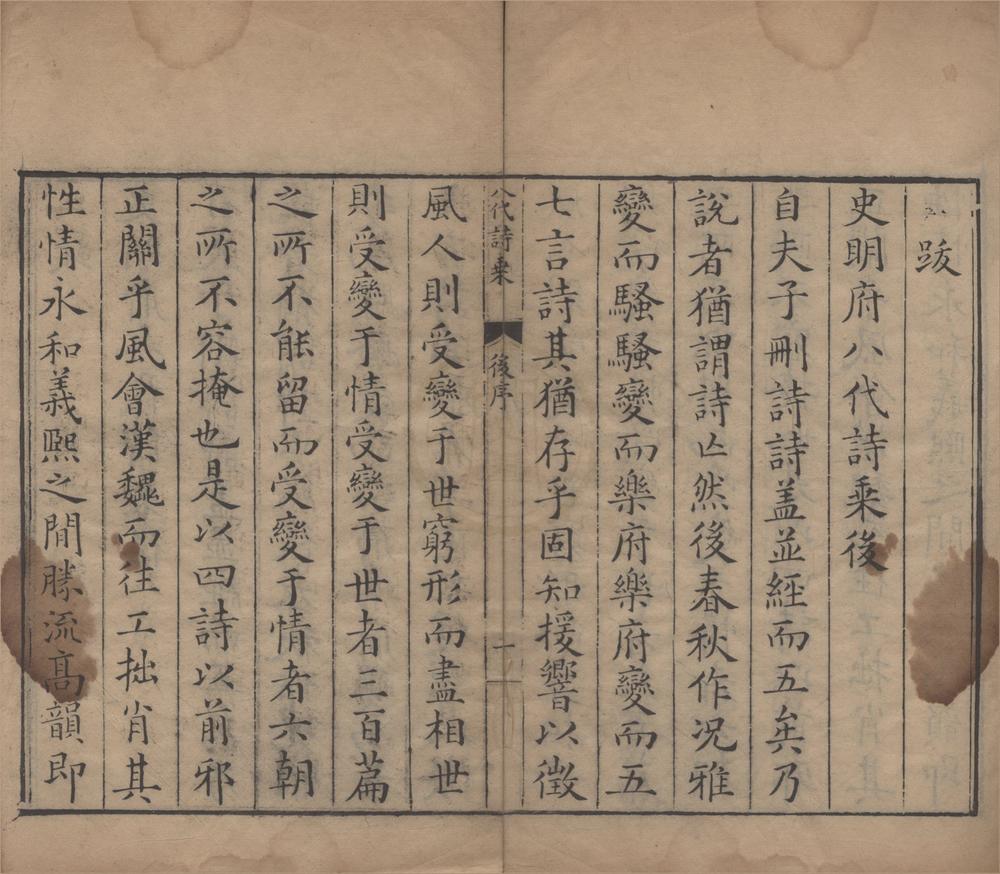 跋
史明府八代詩乘後
自夫子刪詩詩蓋並經而五矣乃
說者猶謂詩亾然後春秋作况雅
變而騷騷變而樂府樂府變而五
七言詩其猶存乎固知援響以徵
八代詩乘 後序 一
風人則受變于世窮形而盡相世
則受變于情受變于世者三百篇
之所不能留而受變于情者六朝
之所不容掩也是以四詩以前邪
正關乎風會漢魏而往工拙肖其
性情永和義熙之間勝流高韻即